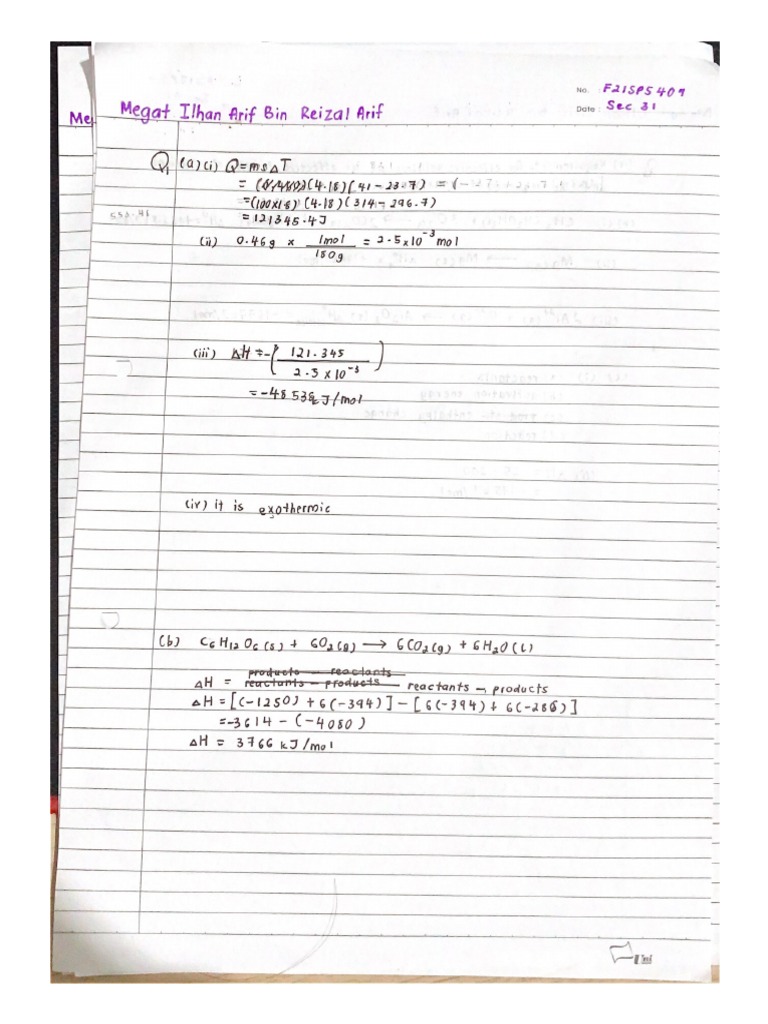 No. : F21SP5409
Date : Sec. 31
Me
Megat Ilhan Arif Bin Reizal Arif
Q1 (a)(i) Q=msΔT
(4.18)(41-23.7) =
=(100×18)(4.18)(314-296.7)
=121345.4J
(ii) 0.46g × 1mol/180g = 2.5×10⁻³mol
(iii) ΔH=-(121.345/2.5×10⁻³)
=-48538kJ/mol
(iv) it is exothermic
(b) C6H12O6(s) + 6O2(g) → 6CO2(g) + 6H2O(l)
products - reactants
ΔH = reactants - products reactants - products
ΔH = [(-1250) + 6(-394)] - [6(-394) + 6(-286)]
=-3614 - (-4080)
ΔH = 3766 kJ/mol